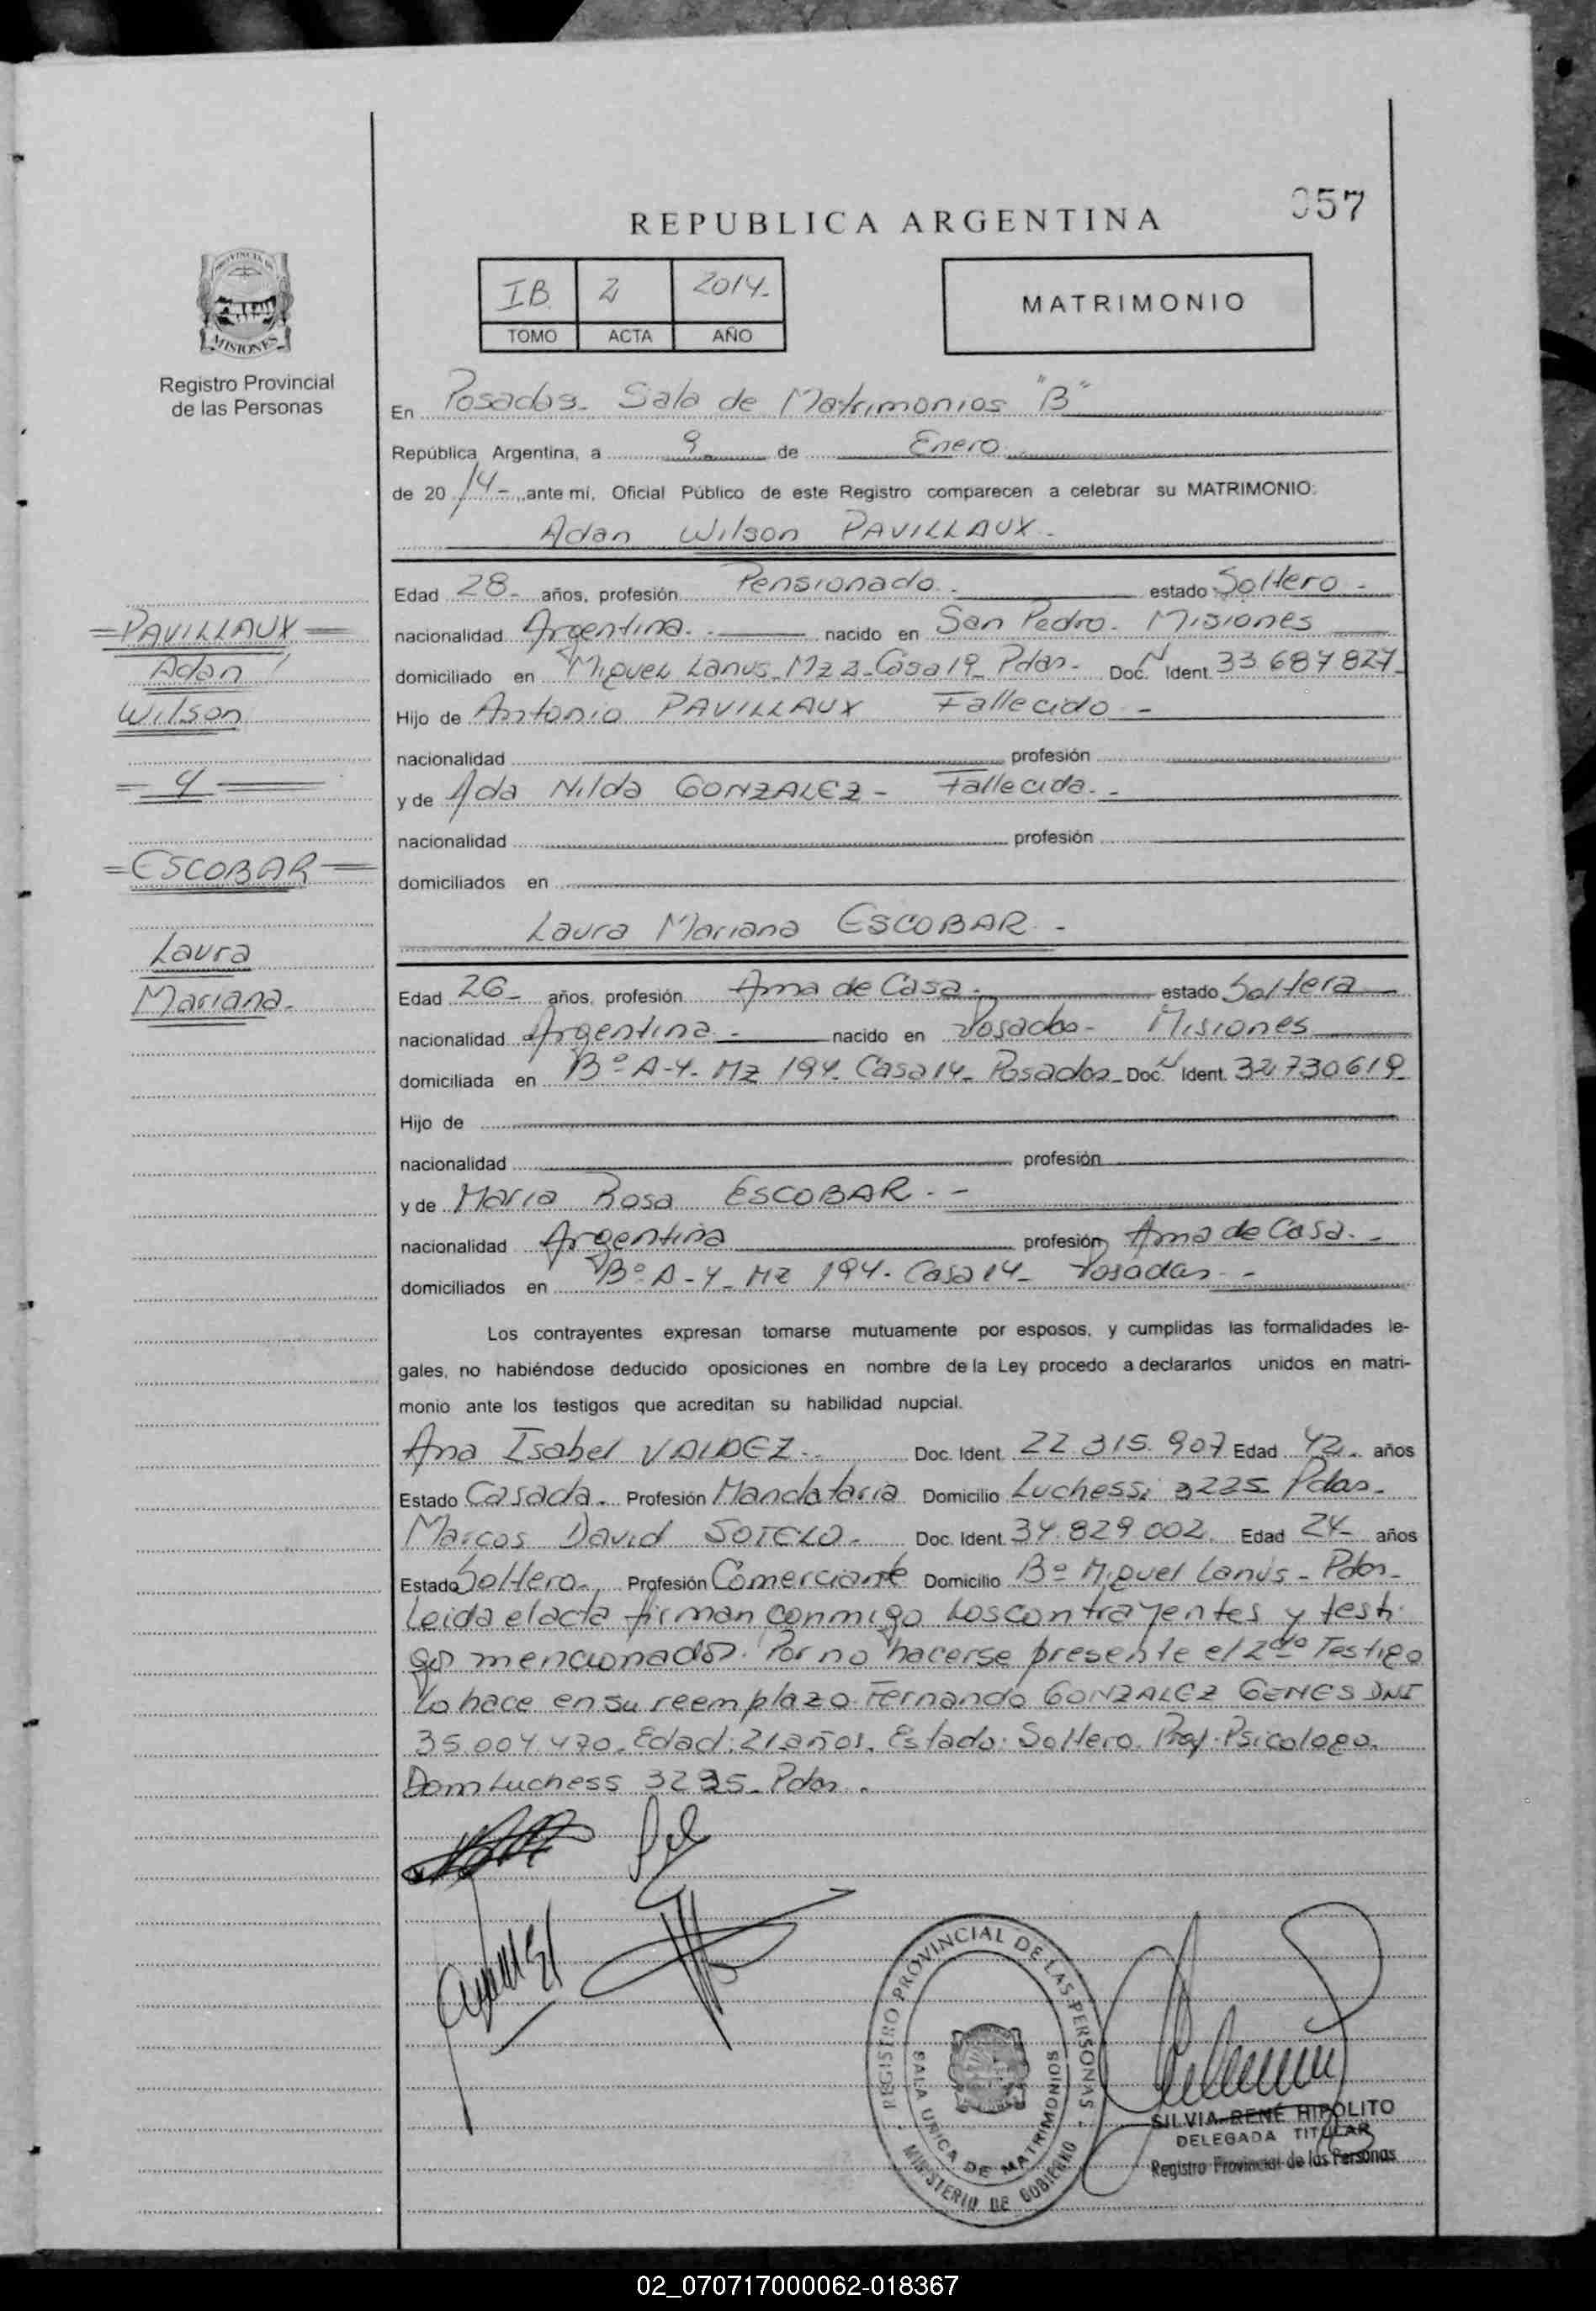 057
REPUBLICA ARGENTINA
PROVINCIA DE
MISIONES
Registro Provincial
de las Personas
IB 2 2014-
TOMO ACTA AÑO
MATRIMONIO
En Posadas- Sala de Matrimonios "B"
República Argentina, a 9 de Enero
de 2014- ante mí, Oficial Público de este Registro comparecen a celebrar su MATRIMONIO:
Adan Wilson PAVILLAUX-
Edad 28- años, profesión Pensionado- estado Soltero-
=PAVILLAUX=
nacionalidad Argentina- nacido en San Pedro- Misiones
Adan
domiciliado en Miguel Lanus- Mz 2- Casa 19- Pdas- Doc. N Ident. 33 687 827-
Wilson
Hijo de Antonio PAVILLAUX Fallecido-
nacionalidad profesión
y de Ada Nilda GONZALEZ- Fallecida-
nacionalidad profesión
=ESCOBAR=
domiciliados en
Laura Mariana ESCOBAR-
Laura
Mariana-
Edad 26- años, profesión Ama de Casa- estado Soltera
nacionalidad Argentina- nacido en Posadas- Misiones
domiciliada en Bº A-4- Mz 194- Casa 14- Posadas- Doc. N Ident. 32.730619
Hijo de
nacionalidad profesión
y de Maria Rosa ESCOBAR.-
nacionalidad Argentina profesión Ama de Casa.-
domiciliados en Bº A-4- Mz 194- Casa 14- Posadas-
Los contrayentes expresan tomarse mutuamente por esposos, y cumplidas las formalidades le-
gales, no habiéndose deducido oposiciones en nombre de la Ley procedo a declararlos unidos en matri-
monio ante los testigos que acreditan su habilidad nupcial.
Ana Isabel VALDEZ- Doc. Ident. 22 315. 907 Edad 42- años
Estado Casada- Profesión Mandataria Domicilio Luchessi 3225 Pdas-
Marcos David SOTELO- Doc. Ident. 34.829.002. Edad 24- años
Estado Soltero- Profesión Comerciante Domicilio Bº Miguel Lanús- Pdas-
Leida el acta firman conmigo los contrayentes y testi-
gos mencionados. Por no hacerse presente el 2do Testigo
lo hace en su reemplazo Fernando GONZALEZ GENES DNI
35.004.470. Edad: 21 años. Estado: Soltero. Prof. Psicologo.
Dom Luchess 3235- Pdas.
REGISTRO PROVINCIAL DE LAS PERSONAS
SALA UNICA DE MATRIMONIOS
MINISTERIO DE GOBIERNO
SILVIA RENÉ HIPÓLITO
DELEGADA TITULAR
Registro Provincial de las Personas
02_070717000062-018367